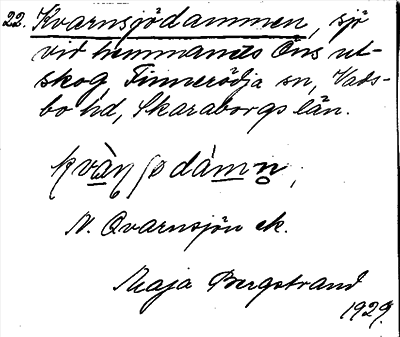 22. Kvarnsjödammen, sjö
vid hemmanets Ons ut-
skog Finnerödja sn, Vads-
bo hd, Skaraborgs län.
N. Qvarnsjön ek.
Maja Bergstrand
1929.